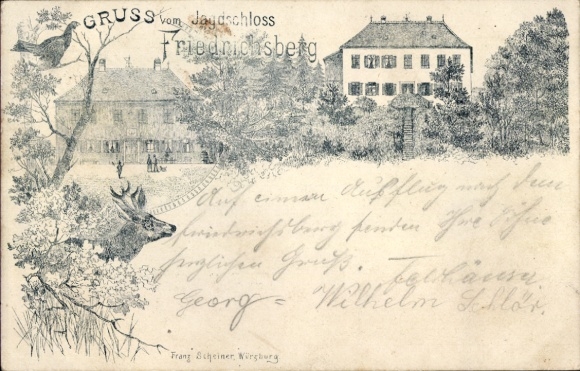 GRUSS vom Jagdschloss
Friedrichsberg
Auf einem Ausflug nach dem
Friedrichsberg senden Ihre Söhne
herzlichen Gruß.
Georg = Wilhelm
Franz Scheiner, Würzburg